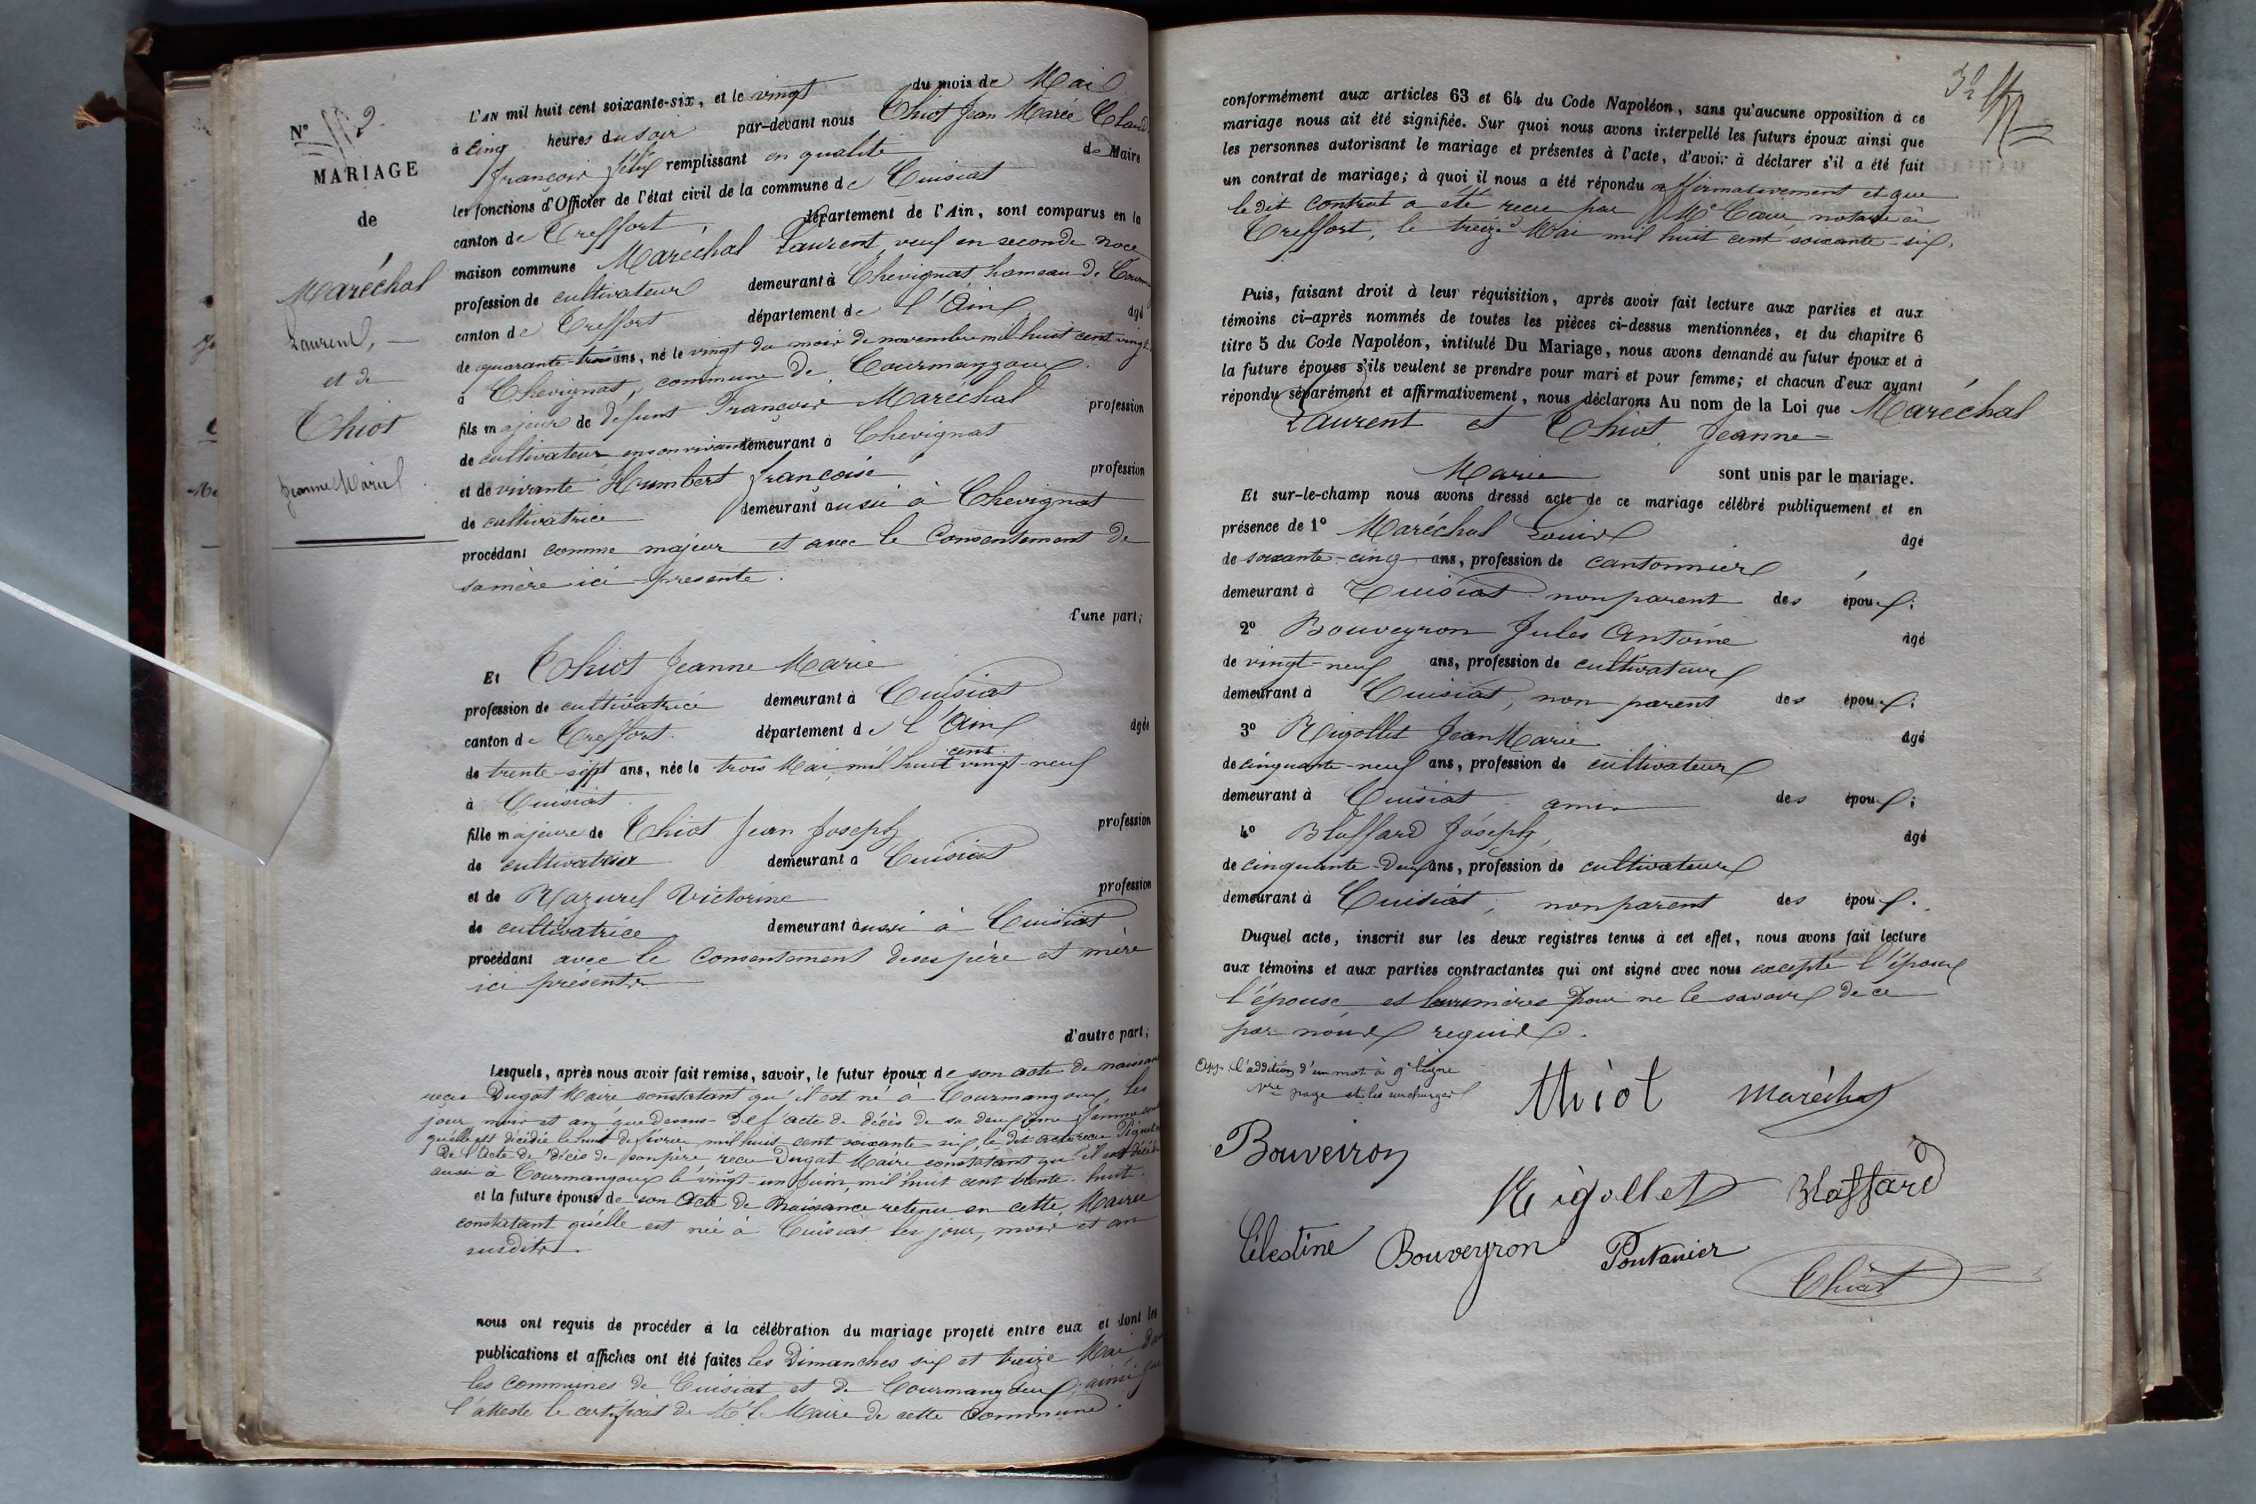 N°
MARIAGE
de
Maréchal
Laurent,
et de
Thiot
Jeanne Marie
L'AN mil huit cent soixante-six, et le vingt du mois de Mai
à cinq heures du soir par-devant nous Thiot Jean Marie Claude
François Félix remplissant en qualité de Maire
les fonctions d'Officier de l'état civil de la commune de Cuisiat
canton de Treffort, département de l'Ain, sont comparus en la
maison commune Maréchal Laurent, veuf en seconde noce
profession de cultivateur demeurant à Chevignat, hameau de
canton de Treffort département de l'Ain âgé
de quarante-trois ans, né le vingt du mois de novembre mil huit cent vingt
à Chevignat, commune de Courmangoux
fils majeur de défunt François Maréchal profession
de cultivateur en son vivant demeurant à Chevignat
et de vivante Humbert Françoise profession
de cultivatrice demeurant aussi à Chevignat
procédant comme majeur et avec le consentement de
sa mère ici présente.
d'une part;
Et Thiot Jeanne Marie
profession de cultivatrice demeurant à Cuisiat
canton de Treffort. département de l'Ain âgée
de trente-sept ans, née le trois Mai mil huit cent vingt-neuf
à Cuisiat.
fille majeure de Thiot Jean Joseph profession
de cultivateur demeurant à Cuisiat
et de Mazurel Victorine profession
de cultivatrice demeurant aussi à Cuisiat
procédant avec le consentement de ses père et mère
ici présents
d'autre part;
Lesquels, après nous avoir fait remise, savoir, le futur époux de son acte de naissance
reçue Dugat Maire constatant qu'il est né à Courmangoux les
jour, mois et an que dessus - de l'acte de décès de sa deuxième femme
qu'elle est décédée le huit de février mil huit cent soixante-six, le dit acte reçu
de l'acte de décès de son père reçu Dugat Maire constatant qu'il est décédé
aussi à Courmangoux le vingt-un Juin, mil huit cent trente-huit.
et la future épouse de son acte de Naissance retenu en cette Mairie
constatant qu'elle est née à Cuisiat les jour, mois et an
susdits.
nous ont requis de procéder à la célébration du mariage projeté entre eux et dont les
publications et affiches ont été faites les Dimanches six et treize Mai dans
les communes de Cuisiat et de Courmangoux, ainsi que
l'atteste le certificat de Mr le Maire de cette Commune.
32
conformément aux articles 63 et 64 du Code Napoléon, sans qu'aucune opposition à ce
mariage nous ait été signifiée. Sur quoi nous avons interpellé les futurs époux ainsi que
les personnes autorisant le mariage et présentes à l'acte, d'avoir à déclarer s'il a été fait
un contrat de mariage; à quoi il nous a été répondu affirmativement et que
le dit contrat a été reçu par Me notaire à
Treffort, le treize Mai mil huit cent soixante-six.
Puis, faisant droit à leur réquisition, après avoir fait lecture aux parties et aux
témoins ci-après nommés de toutes les pièces ci-dessus mentionnées, et du chapitre 6
titre 5 du Code Napoléon, intitulé Du Mariage, nous avons demandé au futur époux et à
la future épouse s'ils veulent se prendre pour mari et pour femme; et chacun d'eux ayant
répondu séparément et affirmativement, nous déclarons Au nom de la Loi que Maréchal
Laurent et Thiot Jeanne=
Marie sont unis par le mariage.
Et sur-le-champ nous avons dressé acte de ce mariage célébré publiquement et en
présence de 1° Maréchal Louis âgé
de soixante-cinq ans, profession de cantonnier
demeurant à Cuisiat non parent des époux;
2° Bouveyron Jules Antoine âgé
de vingt-neuf ans, profession de cultivateur
demeurant à Cuisiat, non parent des époux;
3° Rigollet Jean Marie âgé
de cinquante-neuf ans, profession de cultivateur
demeurant à Cuisiat amis des époux;
4° Blaffard Joseph, âgé
de cinquante-deux ans, profession de cultivateur
demeurant à Cuisiat, non parent des époux.
Duquel acte, inscrit sur les deux registres tenus à cet effet, nous avons fait lecture
aux témoins et aux parties contractantes qui ont signé avec nous excepté l'époux
l'épouse et leurs mères pour ne le savoir de ce
par nous requis.
App. l'addition d'un mot à 9e ligne
1re page et les surcharges
thiot Maréchal
Bouveiron
Rigollet Blaffard
Célestine Bouveyron Pontanier
Thiot